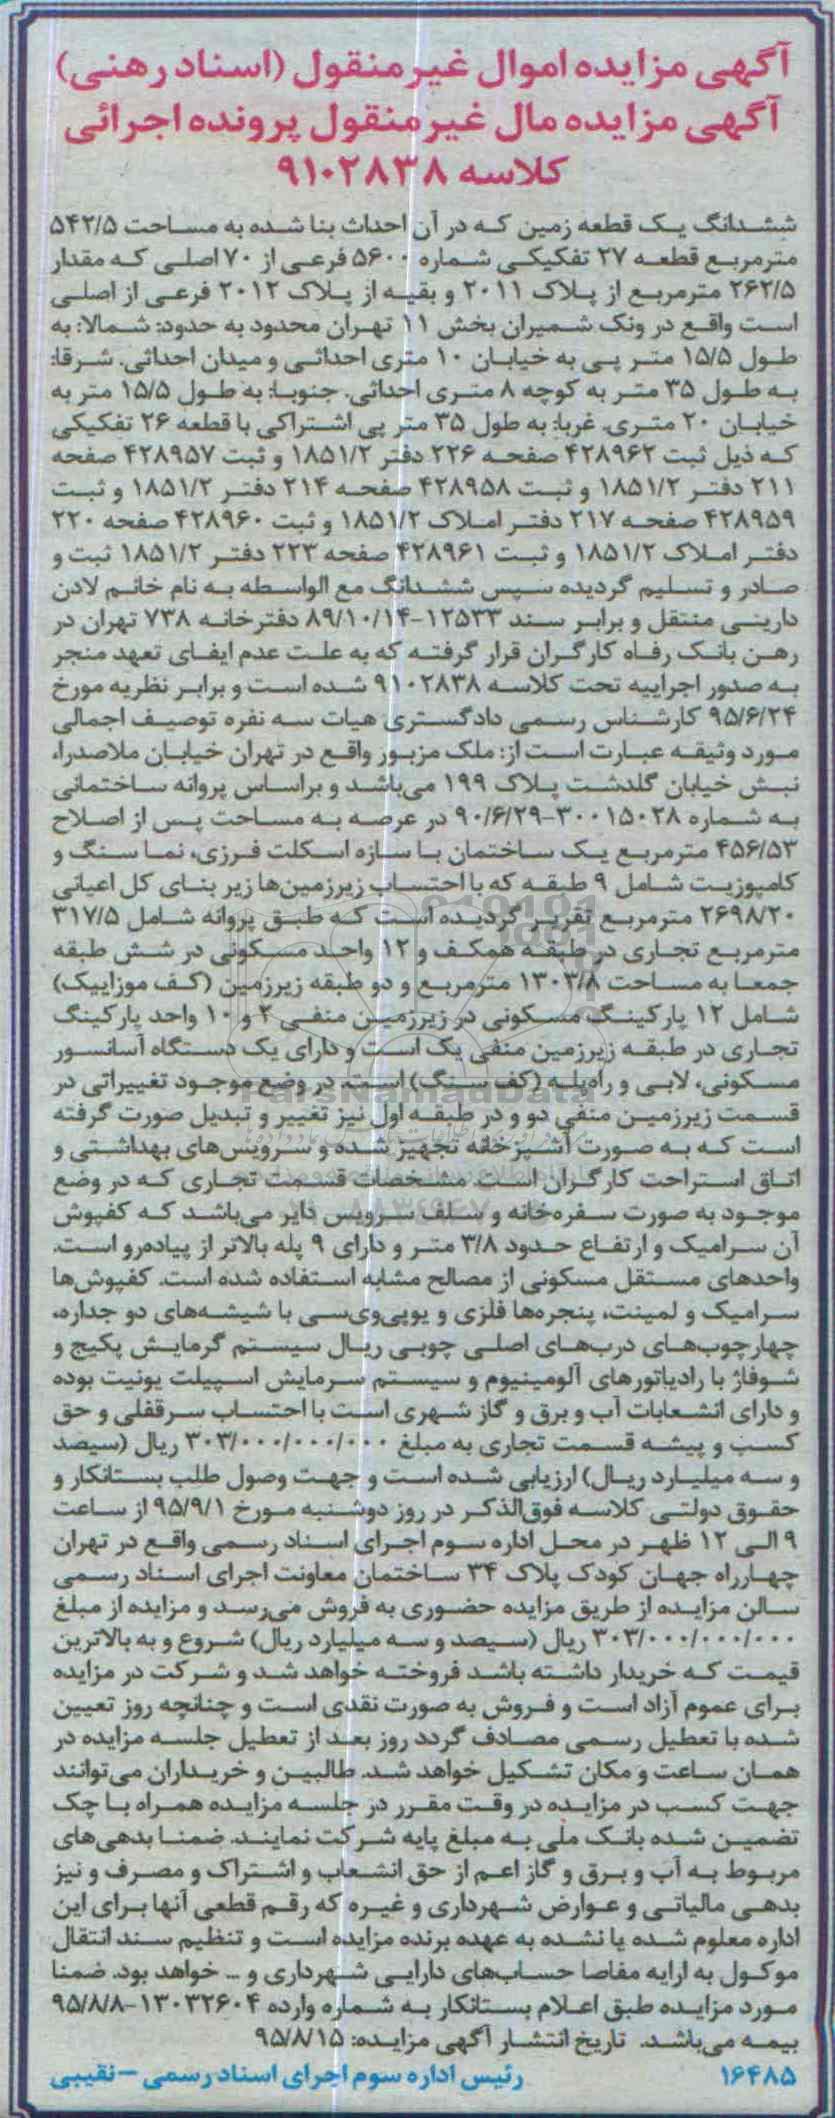 آگهی مزایده اموال غیرمنقول (اسناد رهنی)
آگهی مزایده مال غیرمنقول پرونده اجرائی
کلاسه ۹۱۰۲۸۳۸
ششدانگ یک قطعه زمین که در آن احداث بنا شده به مساحت ۵۴۲/۵
مترمربع قطعه ۲۷ تفکیکی شماره ۵۶۰۰ فرعی از ۷۰ اصلی که مقدار
۲۶۲/۵ مترمربع از پلاک ۲۰۱۱ و بقیه از پلاک ۲۰۱۲ فرعی از اصلی
است واقع در ونک شمیران بخش ۱۱ تهران محدود به حدود: شمالا: به
طول ۱۵/۵ متر پی به خیابان ۱۰ متری احداثی و میدان احداثی. شرقا:
به طول ۳۵ متر به کوچه ۸ متری احداثی. جنوبا: به طول ۱۵/۵ متر به
خیابان ۲۰ متری. غربا: به طول ۳۵ متر پی اشتراکی با قطعه ۲۶ تفکیکی
که ذیل ثبت ۴۲۸۹۶۲ صفحه ۲۲۶ دفتر ۱۸۵۱/۲ و ثبت ۴۲۸۹۵۷ صفحه
۲۱۱ دفتر ۱۸۵۱/۲ و ثبت ۴۲۸۹۵۸ صفحه ۲۱۴ دفتر ۱۸۵۱/۲ و ثبت
۴۲۸۹۵۹ صفحه ۲۱۷ دفتر املاک ۱۸۵۱/۲ و ثبت ۴۲۸۹۶۰ صفحه ۲۲۰
دفتر املاک ۱۸۵۱/۲ و ثبت ۴۲۸۹۶۱ صفحه ۲۲۳ دفتر ۱۸۵۱/۲ ثبت و
صادر و تسلیم گردیده سپس ششدانگ مع الواسطه به نام خانم لادن
دارینی منتقل و برابر سند ۱۲۵۳۳-۸۹/۱۰/۱۴ دفترخانه ۷۳۸ تهران در
رهن بانک رفاه کارگران قرار گرفته که به علت عدم ایفای تعهد منجر
به صدور اجراییه تحت کلاسه ۹۱۰۲۸۳۸ شده است و برابر نظریه مورخ
۹۵/۶/۲۴ کارشناس رسمی دادگستری هیات سه نفره توصیف اجمالی
مورد وثیقه عبارت است از: ملک مزبور واقع در تهران خیابان ملاصدرا،
نبش خیابان گلدشت پلاک ۱۹۹ می‌باشد و براساس پروانه ساختمانی
به شماره ۳۰۰۱۵۰۲۸-۹۰/۶/۲۹ در عرصه به مساحت پس از اصلاح
۴۵۶/۵۳ مترمربع یک ساختمان با سازه اسکلت فرزی، نما سنگ و
کامپوزیت شامل ۹ طبقه که با احتساب زیرزمین‌ها زیر بنای کل اعیانی
۲۶۹۸/۲۰ مترمربع تقریر گردیده است که طبق پروانه شامل ۳۱۷/۵
مترمربع تجاری در طبقه همکف و ۱۲ واحد مسکونی در شش طبقه
جمعا به مساحت ۱۳۰۳/۸ مترمربع و دو طبقه زیرزمین (کف موزاییک)
شامل ۱۲ پارکینگ مسکونی در زیرزمین منفی ۲ و ۱۰ واحد پارکینگ
تجاری در طبقه زیرزمین منفی یک است و دارای یک دستگاه آسانسور
مسکونی، لابی و راه‌پله (کف سنگ) است. در وضع موجود تغییراتی در
قسمت زیرزمین منفی دو و در طبقه اول نیز تغییر و تبدیل صورت گرفته
است که به صورت آشپزخانه تجهیز شده و سرویس‌های بهداشتی و
اتاق استراحت کارگران است. مشخصات قسمت تجاری که در وضع
موجود به صورت سفره‌خانه و سلف سرویس دایر می‌باشد که کفپوش
آن سرامیک و ارتفاع حدود ۳/۸ متر و دارای ۹ پله بالاتر از پیاده‌رو است.
واحدهای مستقل مسکونی از مصالح مشابه استفاده شده است. کفپوش‌ها
سرامیک و لمینت، پنجره‌ها فلزی و یوپی‌وی‌سی با شیشه‌های دو جداره،
چهارچوب‌های درب‌های اصلی چوبی ریال سیستم گرمایش پکیج و
شوفاژ با رادیاتورهای آلومینیوم و سیستم سرمایش اسپیلت یونیت بوده
و دارای انشعابات آب و برق و گاز شهری است با احتساب سرقفلی و حق
کسب و پیشه قسمت تجاری به مبلغ ۳۰۳/۰۰۰/۰۰۰/۰۰۰ ریال (سیصد
و سه میلیارد ریال) ارزیابی شده است و جهت وصول طلب بستانکار و
حقوق دولتی کلاسه فوق‌الذکر در روز دوشنبه مورخ ۹۵/۹/۱ از ساعت
۹ الی ۱۲ ظهر در محل اداره سوم اجرای اسناد رسمی واقع در تهران
چهارراه جهان کودک پلاک ۳۴ ساختمان معاونت اجرای اسناد رسمی
سالن مزایده از طریق مزایده حضوری به فروش می‌رسد و مزایده از مبلغ
۳۰۳/۰۰۰/۰۰۰/۰۰۰ ریال (سیصد و سه میلیارد ریال) شروع و به بالاترین
قیمت که خریدار داشته باشد فروخته خواهد شد و شرکت در مزایده
برای عموم آزاد است و فروش به صورت نقدی است و چنانچه روز تعیین
شده با تعطیل رسمی مصادف گردد روز بعد از تعطیل جلسه مزایده در
همان ساعت و مکان تشکیل خواهد شد. طالبین و خریداران می‌توانند
جهت کسب در مزایده در وقت مقرر در جلسه مزایده همراه با چک
تضمین شده بانک ملی به مبلغ پایه شرکت نمایند. ضمنا بدهی‌های
مربوط به آب و برق و گاز اعم از حق انشعاب و اشتراک و مصرف و نیز
بدهی مالیاتی و عوارض شهرداری و غیره که رقم قطعی آنها برای این
اداره معلوم شده یا نشده به عهده برنده مزایده است و تنظیم سند انتقال
موکول به ارایه مفاصا حساب‌های دارایی شهرداری و ... خواهد بود. ضمنا
مورد مزایده طبق اعلام بستانکار به شماره وارده ۱۳۰۳۲۶۰۴-۹۵/۸/۸
بیمه می‌باشد. تاریخ انتشار آگهی مزایده: ۹۵/۸/۱۵
۱۶۴۸۵ رئیس اداره سوم اجرای اسناد رسمی - نقیبی
ParsNamadData